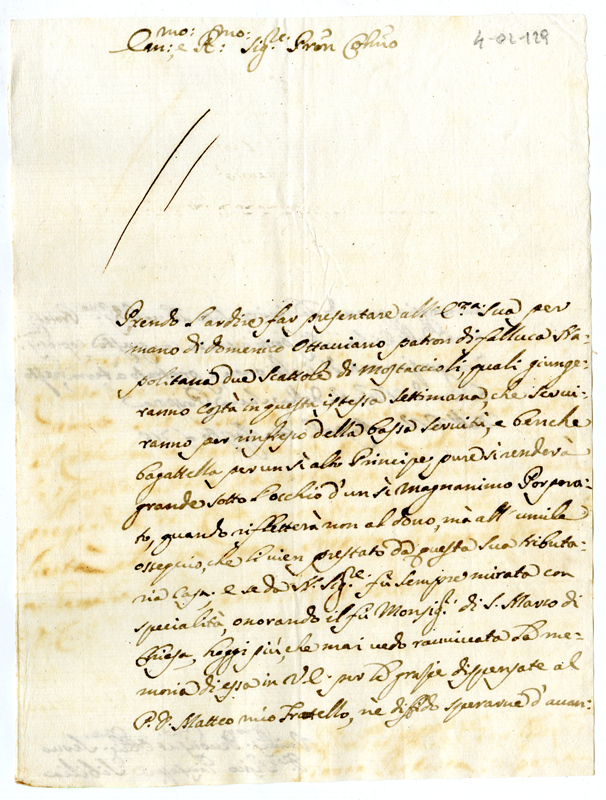 Em:mo e R:mo Sig:re Pron Colmo
4-02-129
Prendo l'ardire far presentare all' E.za Sua per
mano di Domenico Ottaviano patron di falluca Na-
politana due Scattole di Mostaccioli, quali giunge-
ranno costà in questa istessa Settimana, che servi-
ranno per ingresso della bassa servitù, e benche
bagattella per un sì alto Principe, pure si renderà
grande sotto l'occhio d'un sì Magnanimo Porpora-
to, quando rifletterà non al dono, mà all' umile
ossequio, che li vien prestato da questa sua tributa-
ria Casa. e se da N. Sig.re fù sempre mirata con
specialità, onorando il fù Monsig.r di S. Marco di
Chiesa, hoggi più, che mai vedo ravvivata la me-
moria di essa in V.E. per le grazie dispensate al
P. D. Matteo mio Fratello, nè diffido sperarne d'avan-